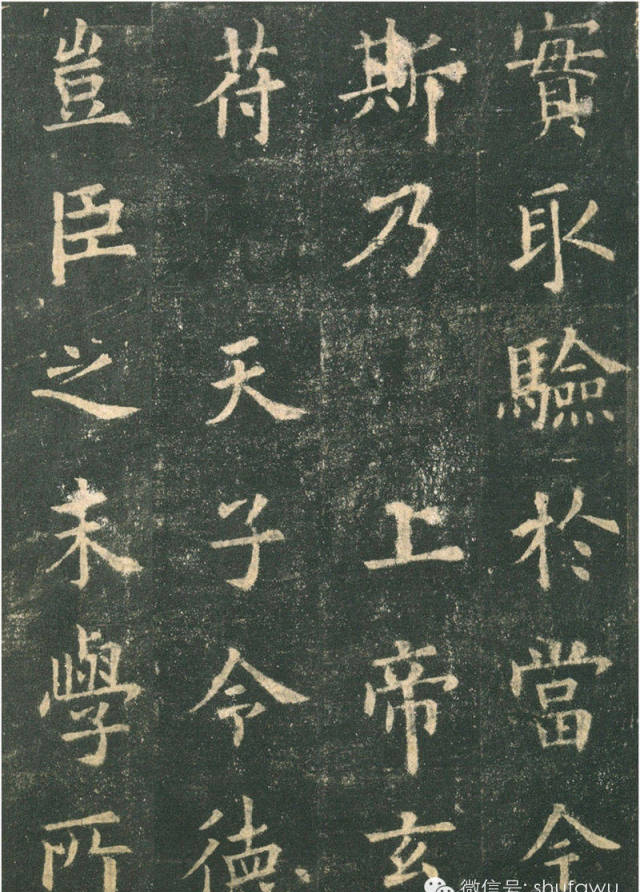 實取驗於當今
斯乃 上帝玄
苻 天子令德
豈臣之末學所
微信号: shufawu